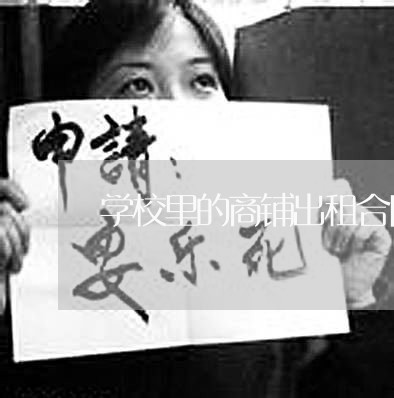 申請：
学校里的商铺出租合
要乐死